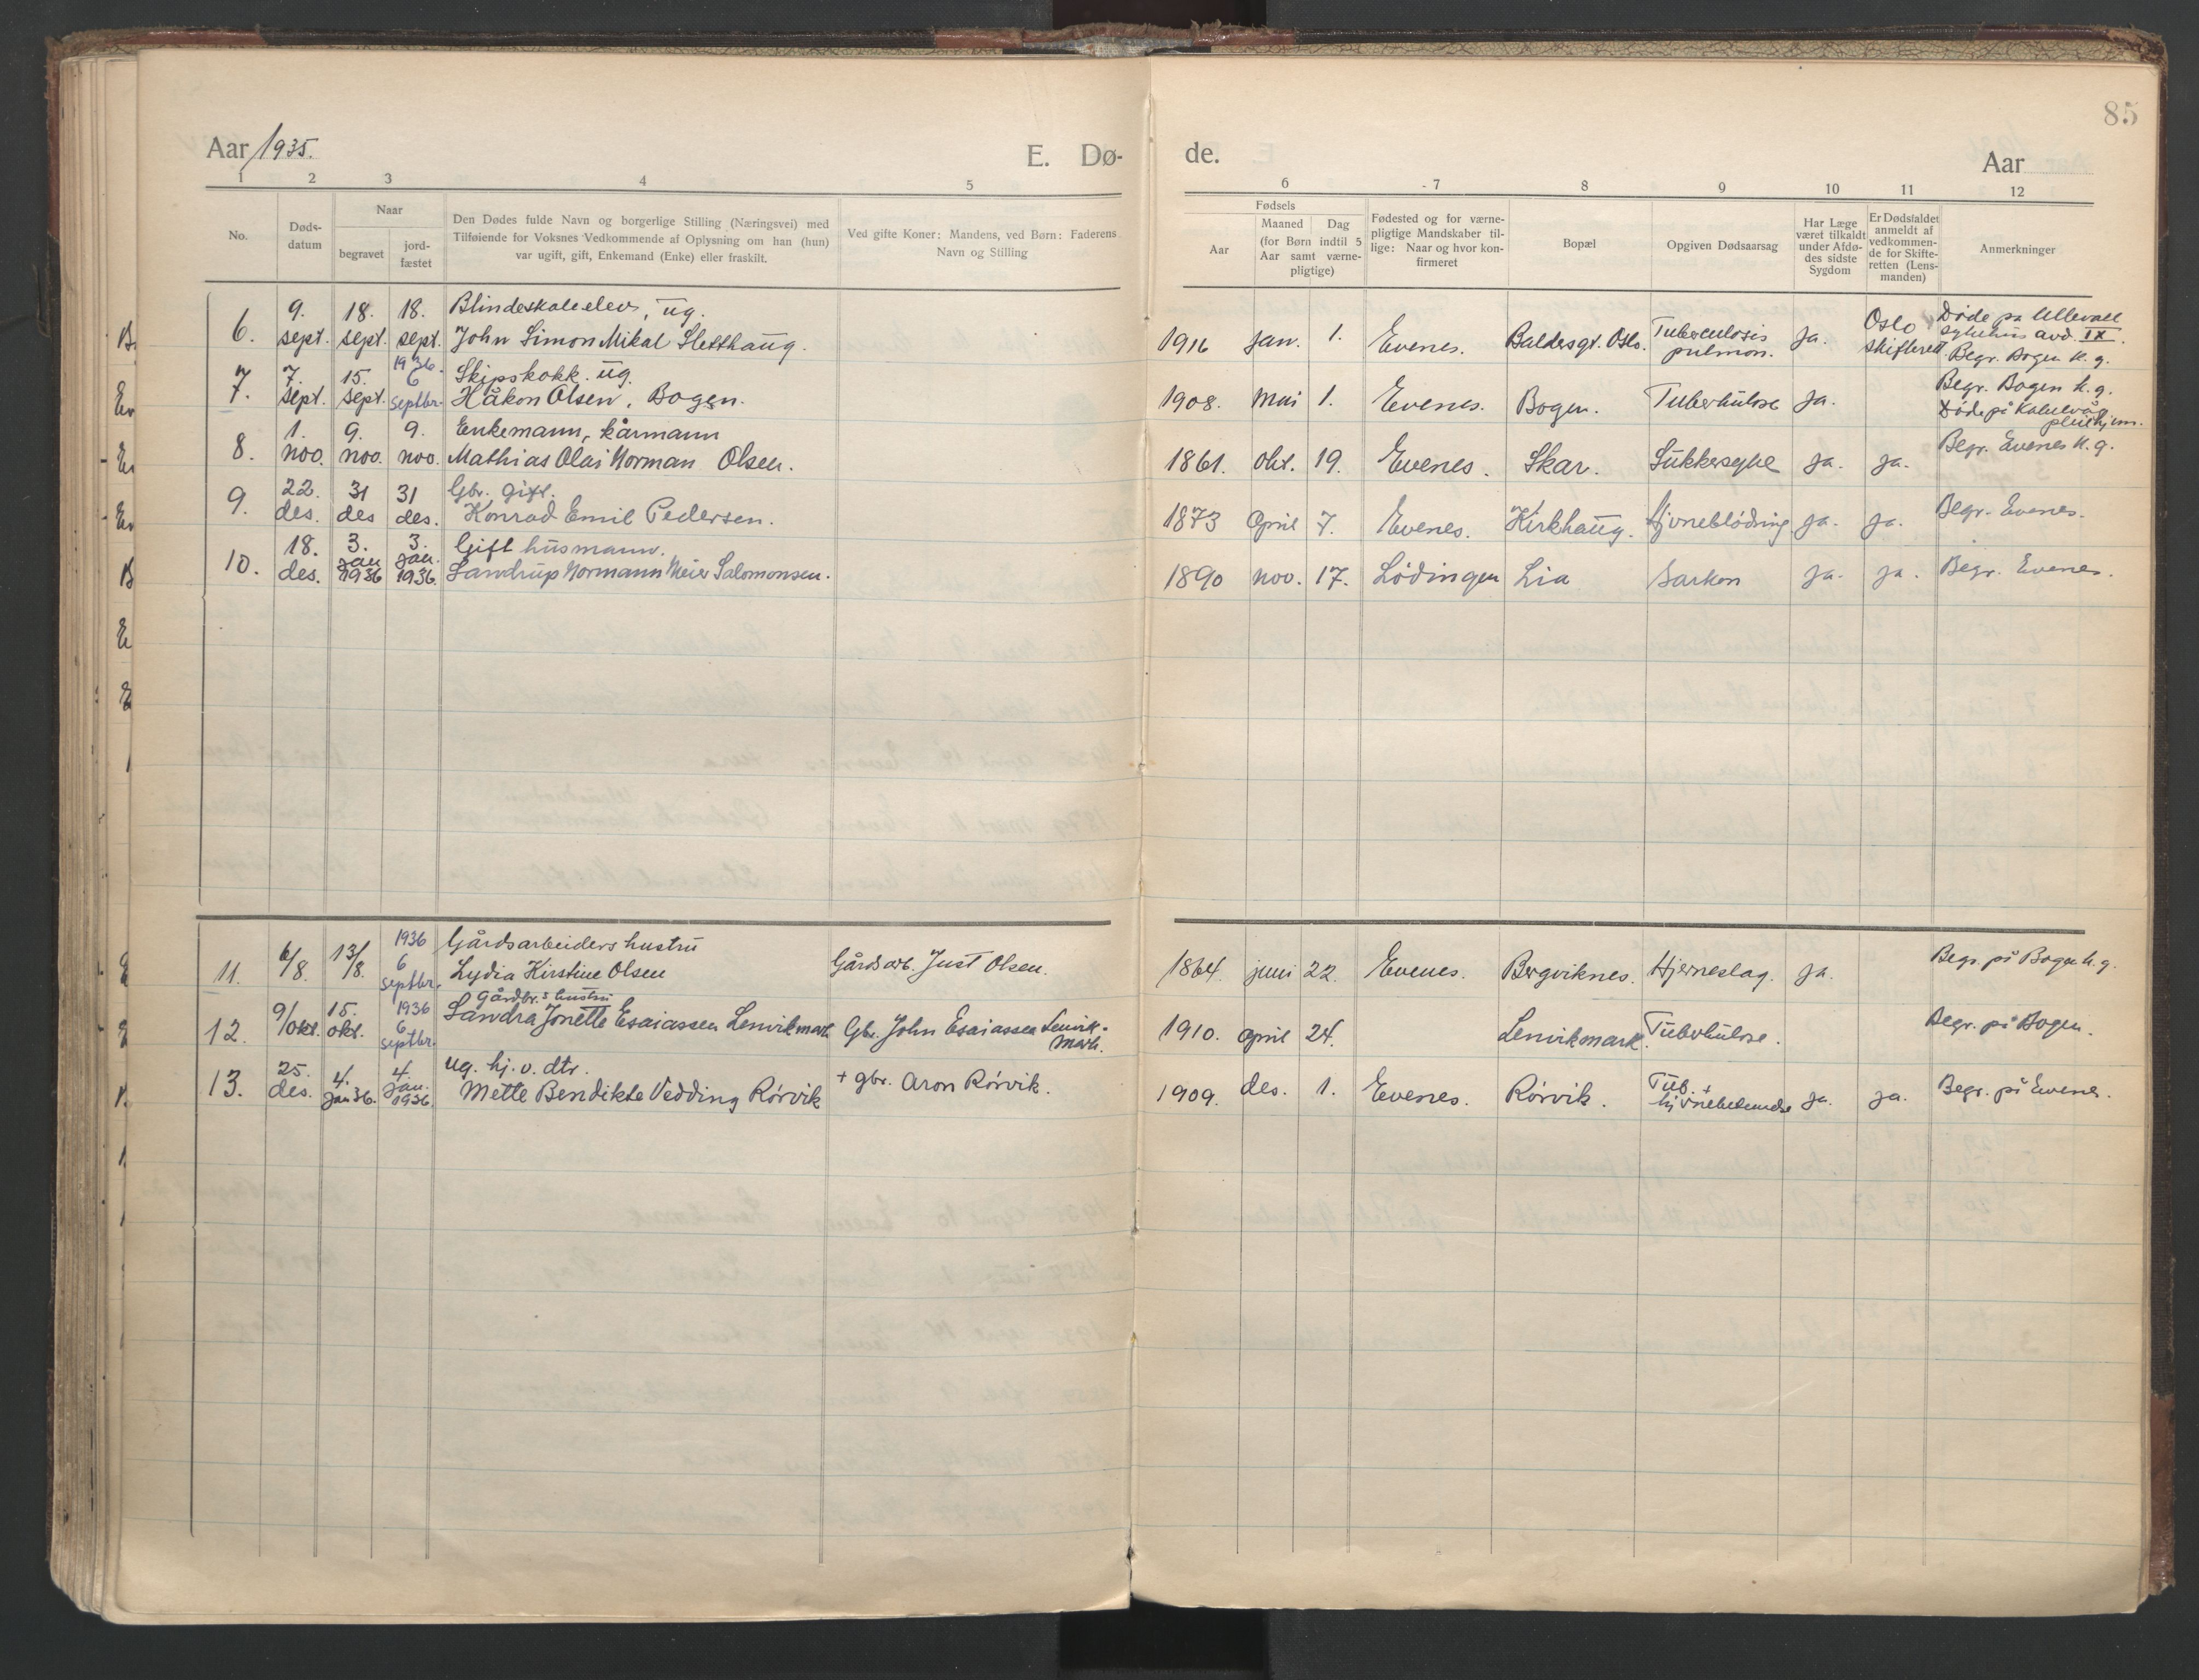 85
Aar 1935. E. Dø- de. Aar
1 2 3 4 5 6 7 8 9 10 11 12
No.
Døds-
datum
Naar
begravet
jord-
fæstet
Den Dødes fulde Navn og borgerlige Stilling (Næringsvei) med
Tilføiende for Voksnes Vedkommende af Oplysning om han (hun)
var ugift, gift, Enkemand (Enke) eller fraskilt.
Ved gifte Koner: Mandens, ved Børn: Faderens
Navn og Stilling
Fødsels
Aar
Maaned Dag
(for Børn indtil 5
Aar samt værne-
pligtige)
Fødested og for værne-
pligtige Mandskaber til-
lige: Naar og hvor kon-
firmeret
Bopæl
Opgiven Dødsaarsag
Har Læge
været tilkaldt
under Afdø-
des sidste
Sygdom
Er Dødsfaldet
anmeldt af
vedkommen-
de for Skifte-
retten (Lens-
manden)
Anmerkninger
9. 18. 18. Blindeskoleelev, ug. Oslo Døde på Ullevaal
6. sept. sept. sept. John Simon Mikal Sletthaug. 1916 jan. 1. Evenes. Baldersgt. Oslo. Tuberculosis ja. skifterett sykehus avd. IX.
pulmon. Begr. Bogen k.g.
1936.
7. 15. 6 Skipskokk. ug. Begr. Bogen k.g.
7. sept. sept. septbr. Håkon Olsen, Bogen. 1908. mai 1. Evenes. Bogen. Tuberkulose ja. Døde på
pleiehjem.
1. 9. 9. Enkemann, kårmann
8. nov. nov. nov. Mathias Olai Norman Olsen. 1861. okt. 19. Evenes. Skar. Sukkersyke ja. ja. Begr. Evenes k.g.
22. 31 31 Gbr. gift.
9. des. des des. Konrad Emil Pedersen. 1873 april 7. Evenes. Kirkhaug. Hjerneblödning ja. ja. Begr. Evenes.
18. 3. 3. Gift husmann.
10. des. jan 1936 jan. 1936. Sandrup Normann Meier Salomonsen. 1890 nov. 17. Lödingen Lia Sarkon ja. ja. Begr. Evenes.
1936 Gårdsarbeiders hustru
11. 6/8. 13/8. 6 septbr. Lydia Kirstine Olsen Gårdsarb. Just Olsen. 1864. juni 22. Evenes. Bergviknes. Hjerneslag. ja. Begr. på Bogen k.g.
Gårdbr.s hustru
12. 9/okt. 15. okt. 1936 6 septbr. Sandra Jonette Esaiassen Lenvikmark Gbr. John Esaiassen Lenvik-
mark. 1910. april 24. Lenvikmark. Tuberkulose. Begr. på Bogen.
25. 4. 4. ug. hj.v. dtr.
13. des. jan 36. jan. 1936. Mette Bendikte Vedding Rörvik + gbr. Aron Rörvik. 1909. des. 1. Evenes. Rörvik. Tub. +
hjernebetendse ja. ja. Begr. på Evenes.